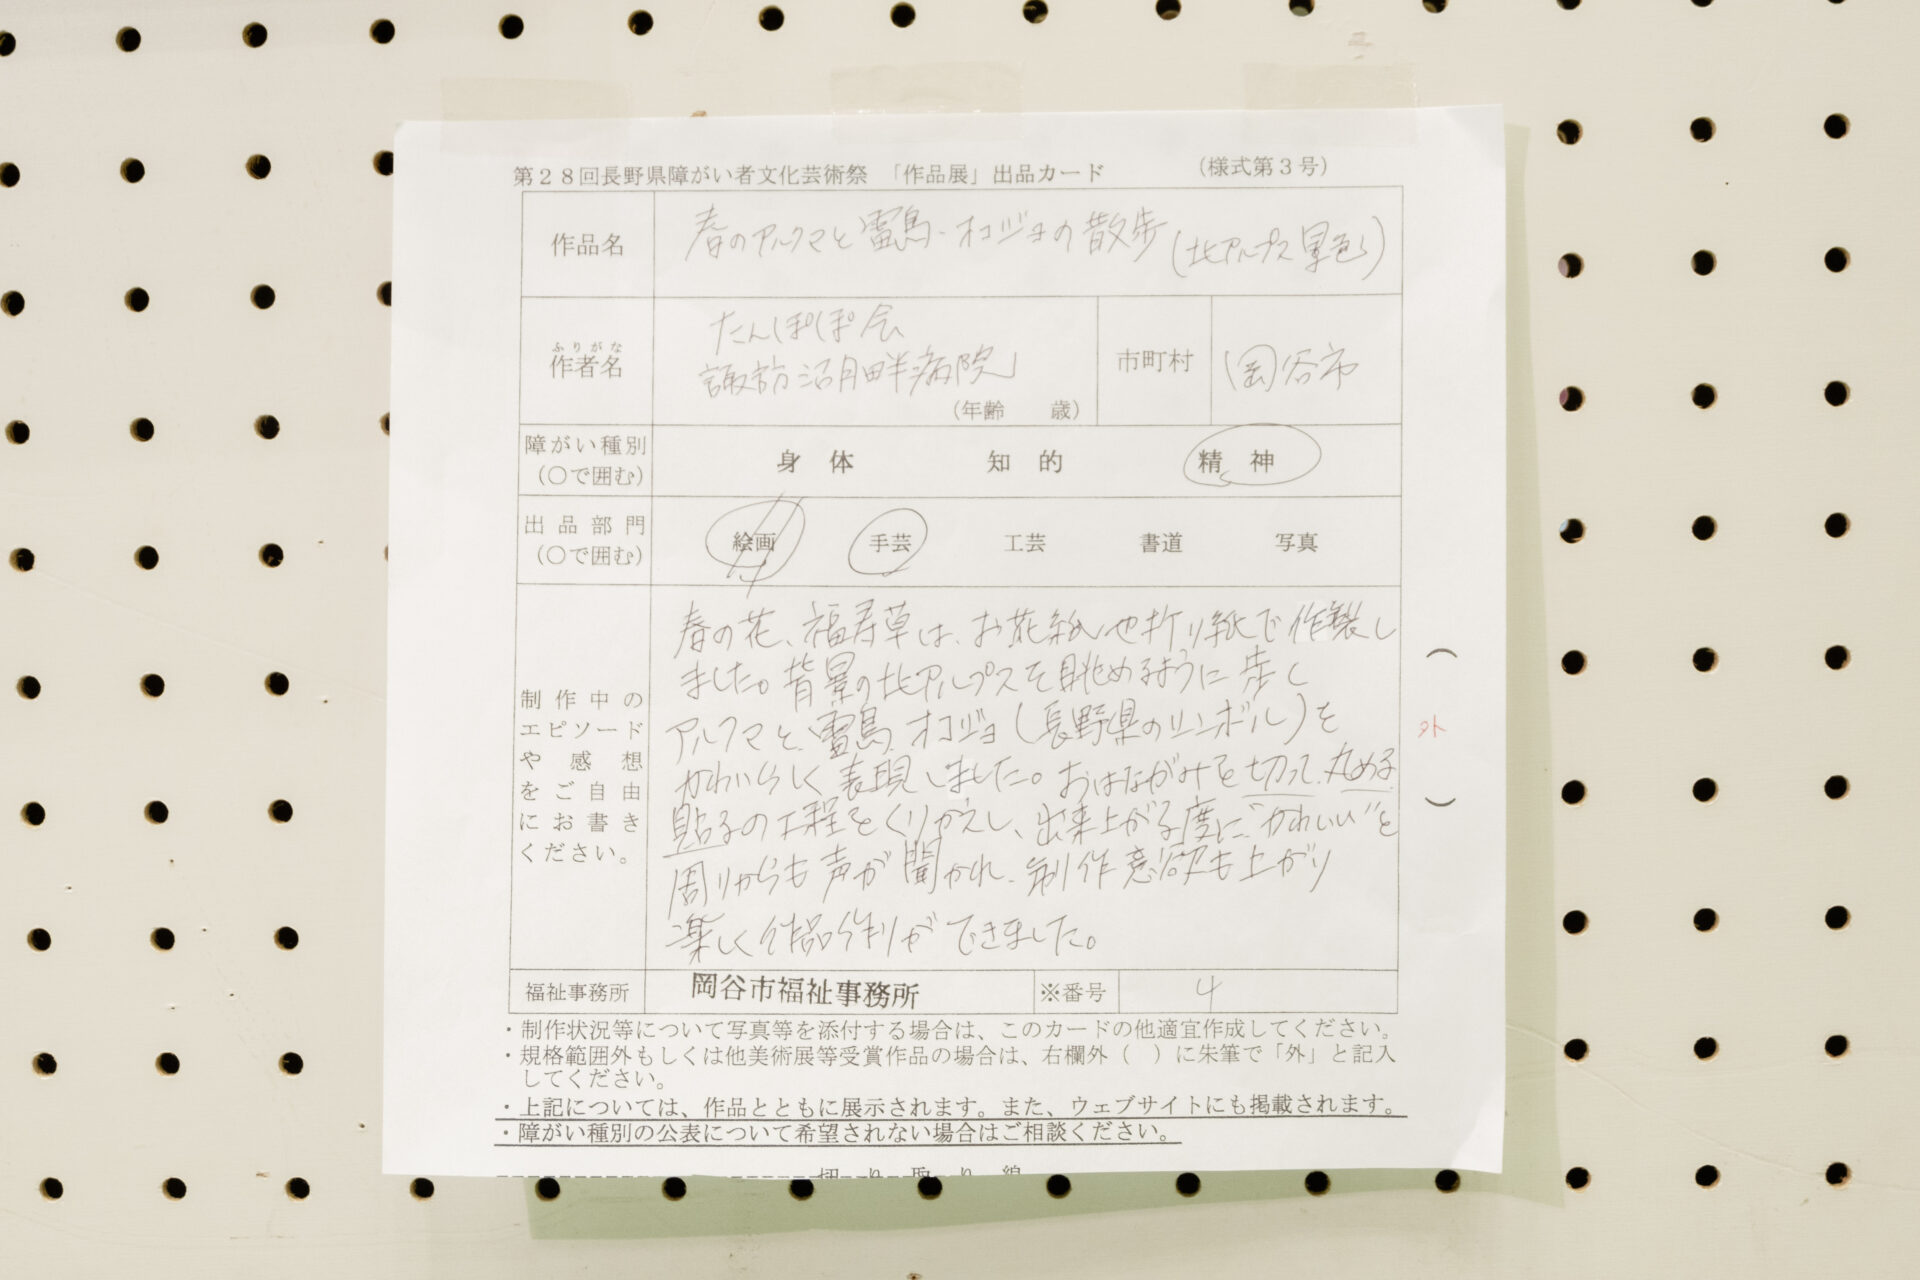 第２８回長野県障がい者文化芸術祭 「作品展」出品カード （様式第３号）
作品名 春のアルクマと雷鳥・オコジョの散歩(北アルプス景色)
ふりがな
作者名 たんぽぽ会
諏訪湖畔病院
（年齢 歳）
市町村 岡谷市
障がい種別
（○で囲む） 身体 知的 精神
出品部門
（○で囲む） 絵画 手芸 工芸 書道 写真
制作中の
エピソード
や感想
をご自由
にお書き
ください。
春の花、福寿草は、お花紙や折り紙で作製し
ました。背景の北アルプスを眺めるように歩く
アルクマと、雷鳥、オコジョ(長野県のシンボル)を
かわいらしく表現しました。おはながみを切って、丸める、
貼るの工程をくりかえし、出来上がる度に、"かわいい"と
周りからも声が聞かれ、制作意欲も上がり
楽しく作品作りができました。
（
外
）
福祉事務所 岡谷市福祉事務所 ※番号 4
・制作状況等について写真等を添付する場合は、このカードの他適宜作成してください。
・規格範囲外もしくは他美術展等受賞作品の場合は、右欄外（ ）に朱筆で「外」と記入
してください。
・上記については、作品とともに展示されます。また、ウェブサイトにも掲載されます。
・障がい種別の公表について希望されない場合はご相談ください。
切り取り線